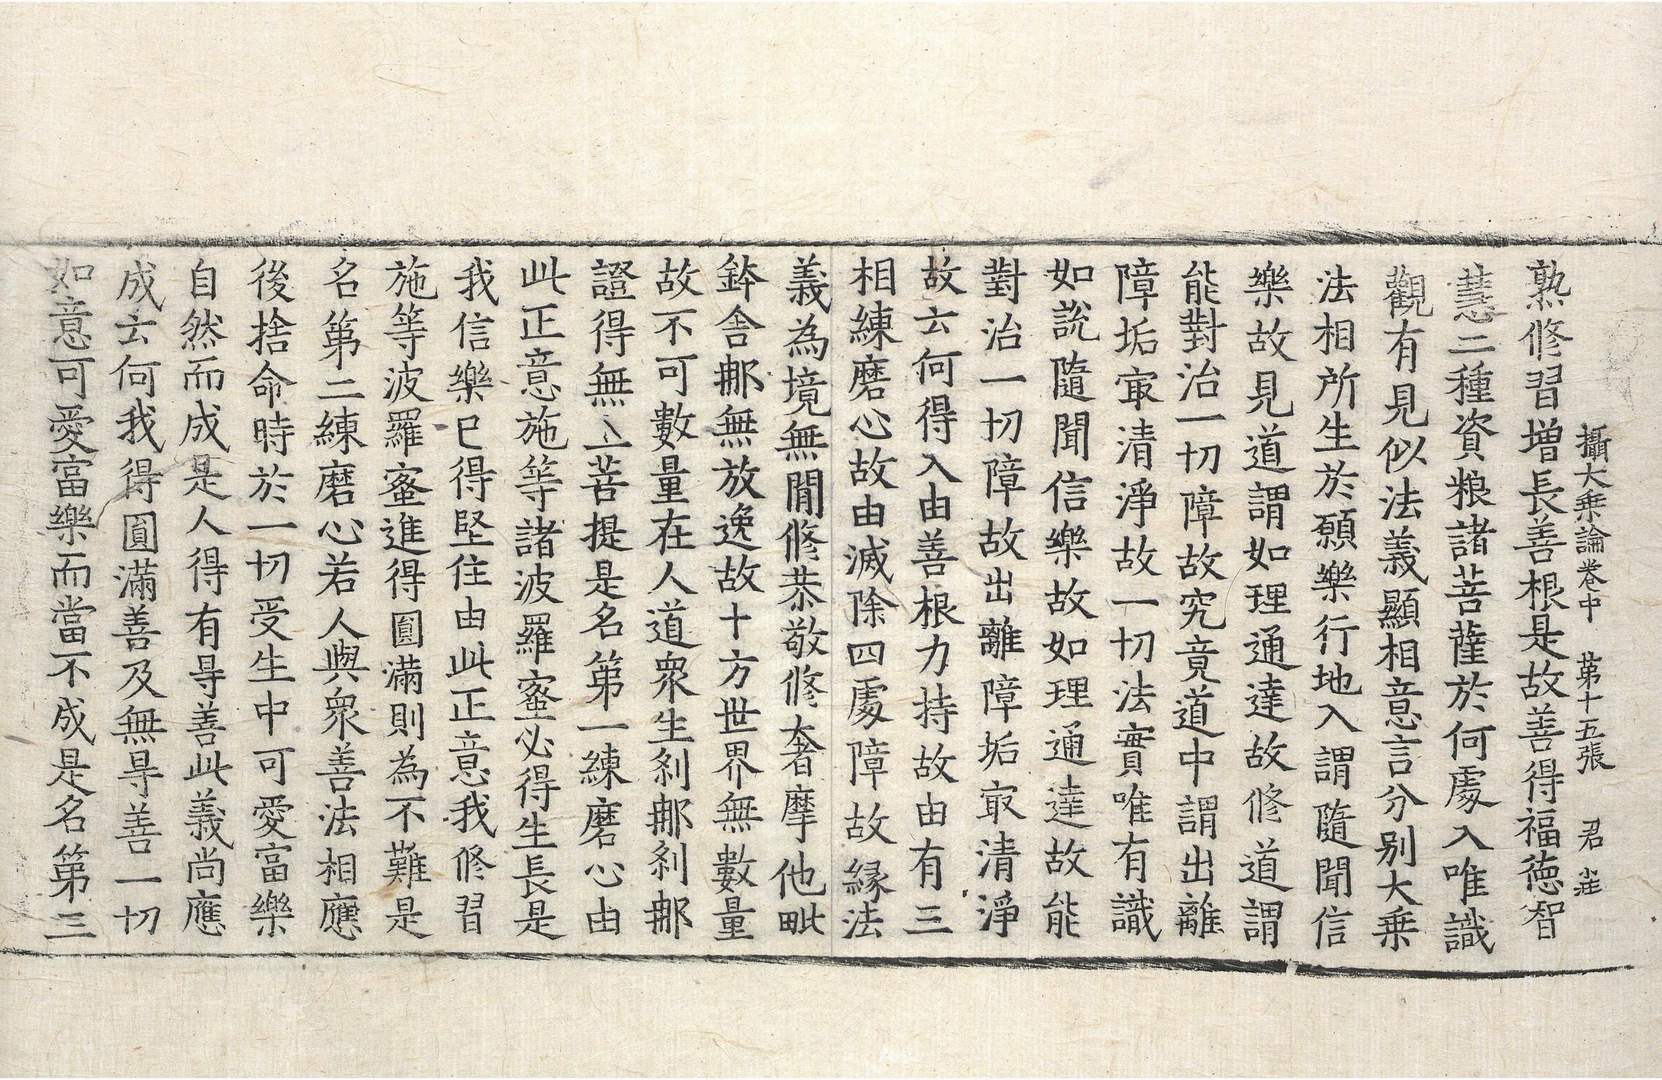 攝大乗論卷中　第十五張　君
熟修習增長善根是故善得福徳智
慧二種資粮諸菩薩於何處入唯識
觀有見似法義顯相意言分别大乗
法相所生於願樂行地入謂隨聞信
樂故見道謂如理通達故修道謂
能對治一切障故究竟道中謂出離
障垢㝡清淨故一切法實唯有識
如說隨聞信樂故如理通達故能
對治一切障故出離障垢㝡清淨
故云何得入由善根力持故由有三
相練磨心故由滅除四處障故縁法
義為境無間修恭敬修奢摩他毗
鉢舎那無放逸故十方世界無數量
故不可數量在人道衆生刹那刹那
證得無上菩提是名第一練磨心由
此正意施等諸波羅蜜必得生長是
我信樂已得堅住由此正意我修習
施等波羅蜜進得圓滿則為不難是
名第二練磨心若人與衆善法相應
後捨命時於一切受生中可愛富樂
自然而成是人得有㝵善此義尚應
成云何我得圓滿善及無㝵善一切
如意可愛富樂而當不成是名第三